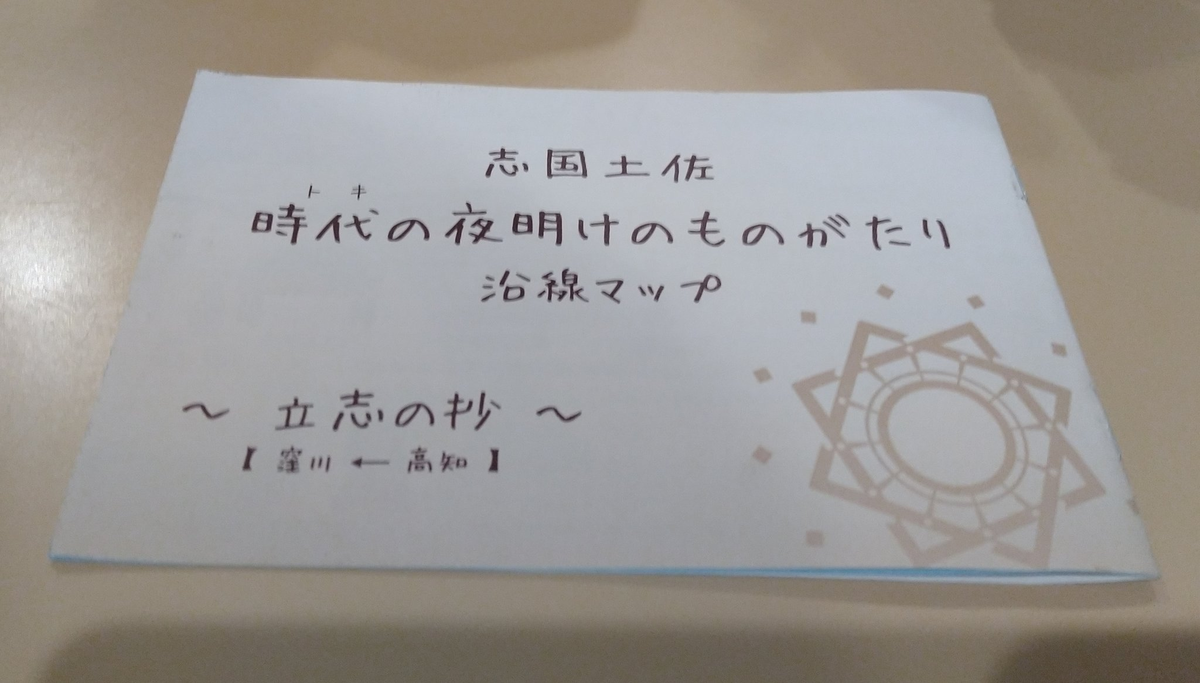 志国土佐
トキ
時代の夜明けのものがたり
沿線マップ
〜 立志の抄 〜
【 窪川 ← 高知 】